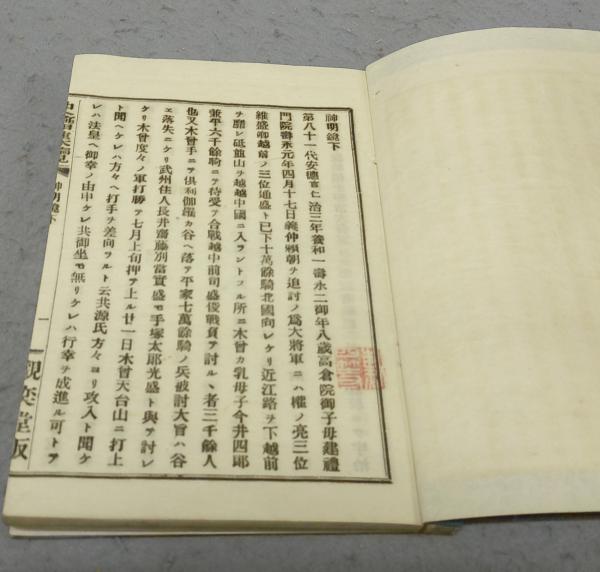 神明鏡下
第八十一代安德言仁治三年養和一壽永二御年八歲高倉院御子母建禮
門院壽永元年四月十七日義仲賴朝ヲ追討ノ爲大將軍ニハ權ノ亮三位
維盛卿越前ノ三位通盛ト已下十萬餘騎北國向レケリ近江路ヲ下越前
ヲ靡シ砥竝山ヲ越越中國ニ入ラントスル所ニ木曾カ乳母子今井四郎
兼平六千餘騎ニテ待受テ合戰越中前司盛俊戰負テ討ルヽ者三千餘人
也又木曾手ニテ俱利伽羅カ谷ヘ落テ平家七萬餘騎ノ兵被討大旨ハ谷
ヱ落失ニケリ武州住人長井齋藤別當實盛モ手塚太郎光盛ト與テ討レ
ケリ木曾度々ノ軍打勝テ七月上旬押テ上ル廿一日木曾天台山ニ打上
ト聞ヘケレハ方々ヘ打手ヲ差向ラルト云共源氏方々ヨリ攻入ト聞ケ
レハ法皇ヘ御幸ノ由申ケレ共御坐モ無リケレハ行幸ヲ成進ル可トテ
神明鏡下
一
觀奕堂版